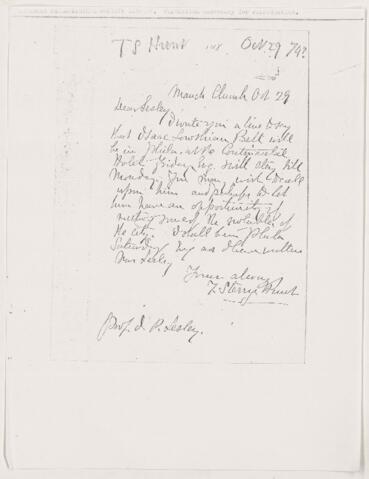 T S Hunt Oct 29 74?
Mauch Chunk Oct 29
Dear Lesley
I write you a line to say
that Isaac Lowthian Bell will
be in Phila. at the Continental
Hotel Friday Eg. & will stay till
Monday. You may wish to call
upon him and perhaps to let
him have an opportunity of
meeting some of the notables of
the city. I shall be in Phila
Saturday Eg as I have written
Mrs Lesley
Yours always
T. Sterry Hunt
Prof. J. P. Lesley.